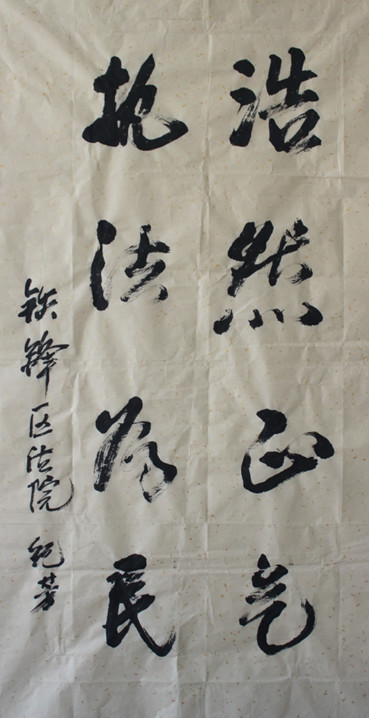 浩然正气
执法为民
铁锋区法院 纪芳